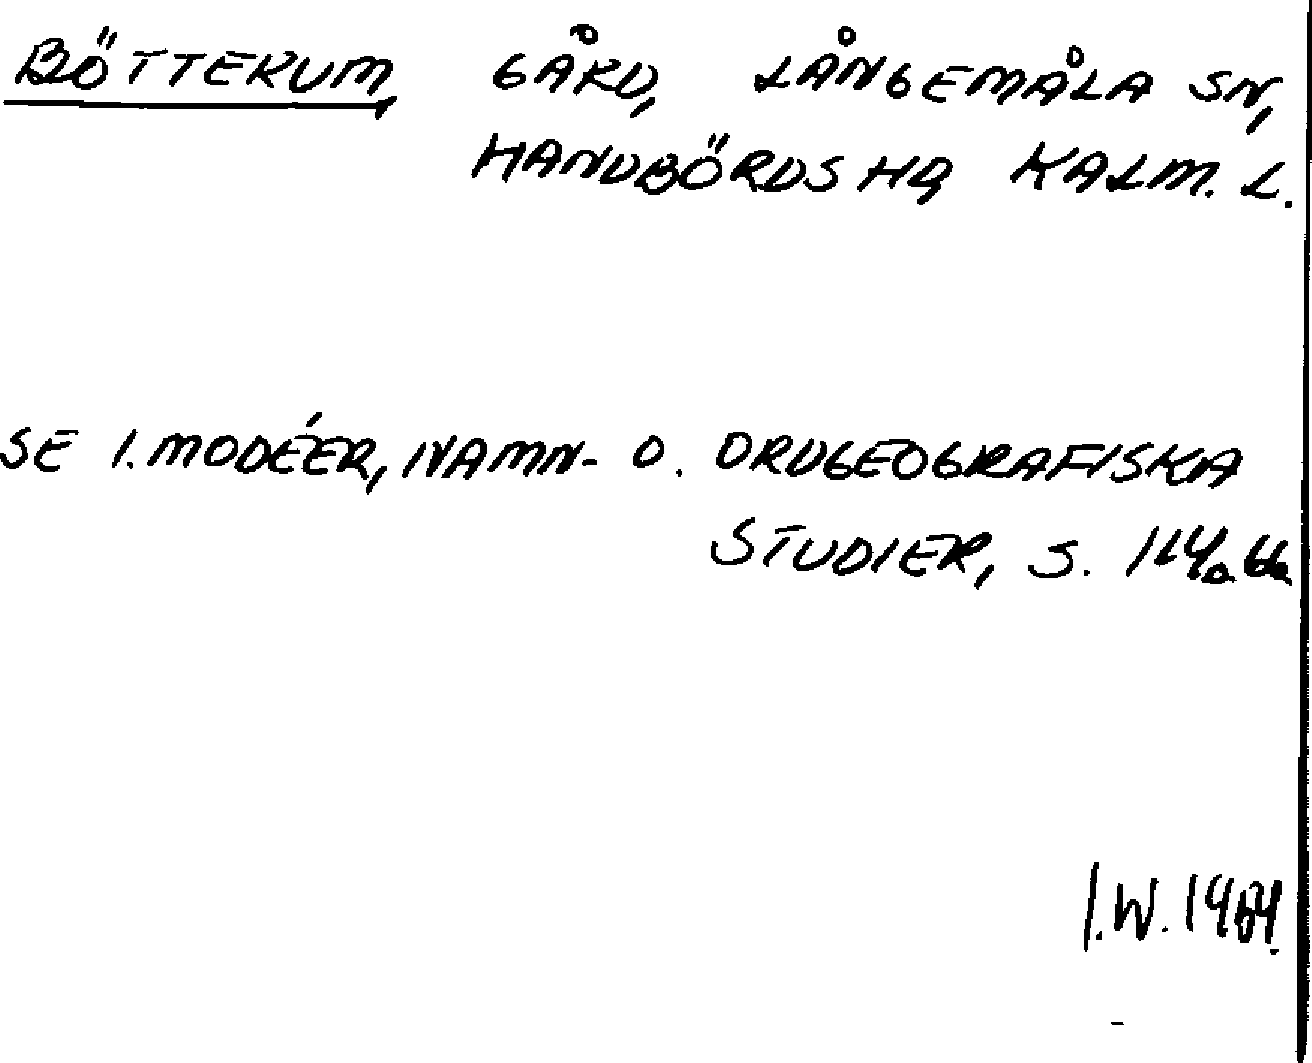 BÖTTERUM, GÅRD, LÅNGEMÅLA SN,
HANDBÖRDS HD, KALM. L.
SE I. MODÉER, NAMN- O. ORDGEOGRAFISKA
STUDIER, S.
I.W.